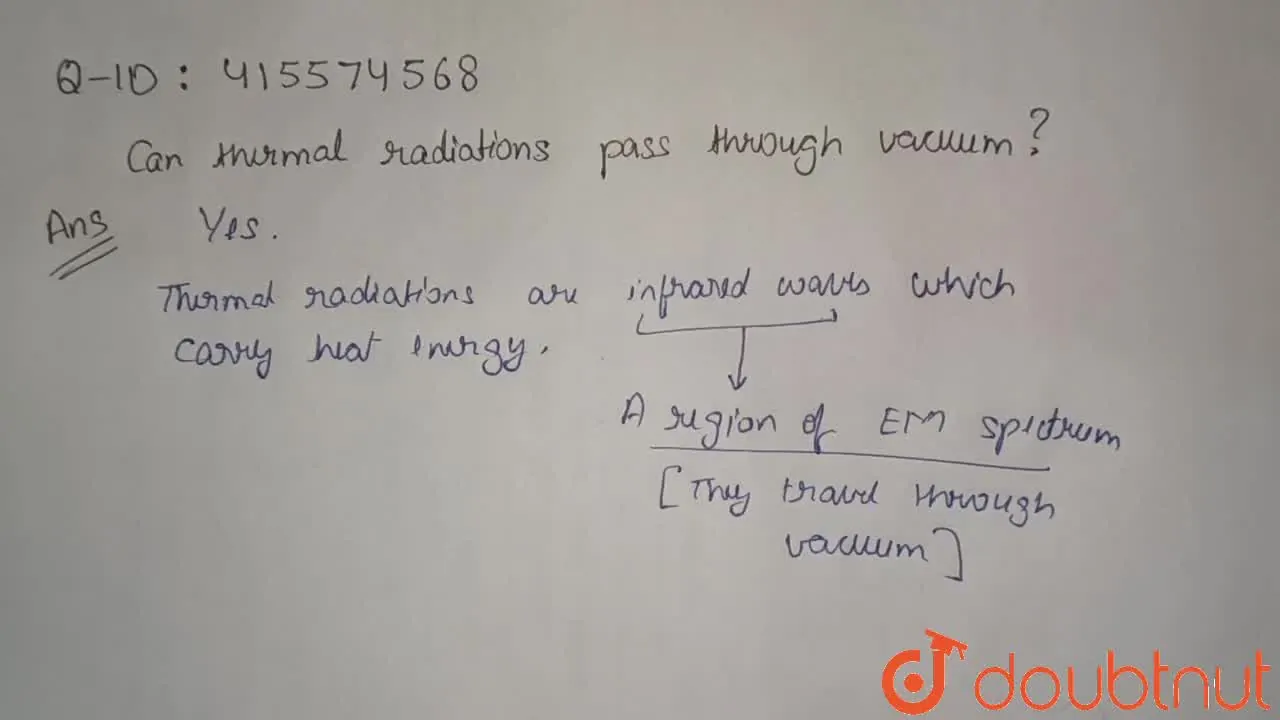 Q-ID : 415574568
Can thermal radiations pass through vacuum?
Ans Yes.
Thermal radiations are infrared waves which
carry heat energy.
A region of EM spectrum
[They travel through
vacuum]
doubtnut